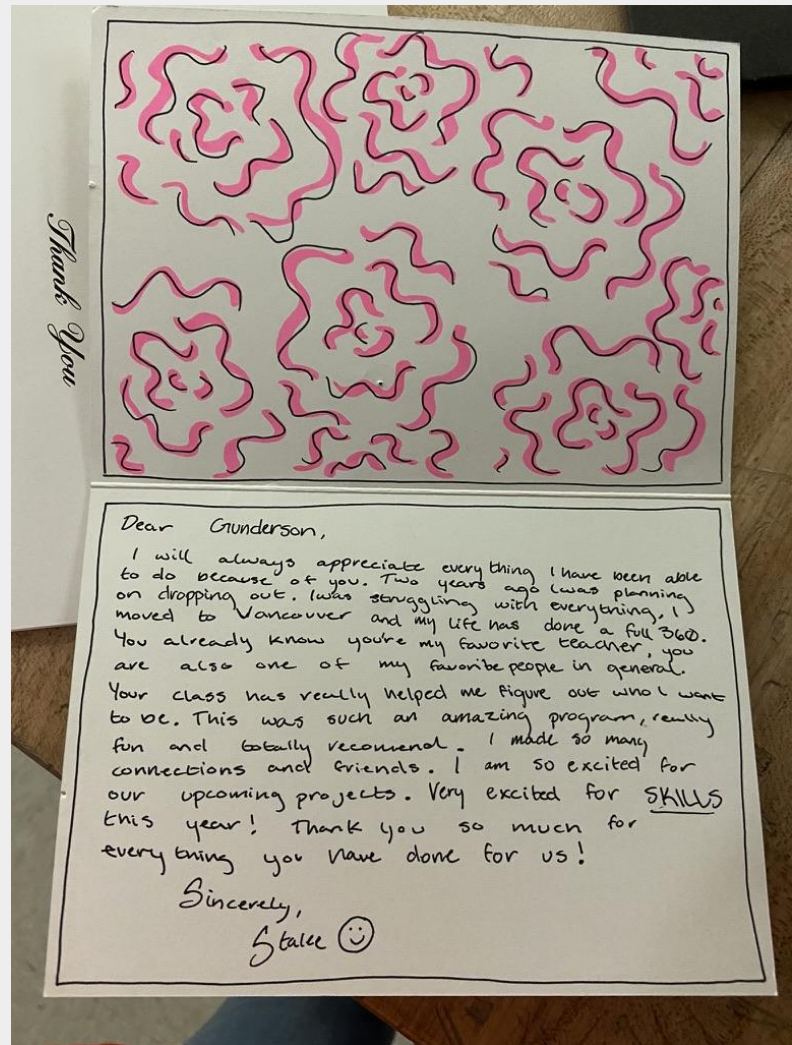 Thank You
Dear Gunderson,
I will always appreciate everything I have been able
to do because of you. Two years ago I was planning
on dropping out. I was struggling with everything, I
moved to Vancouver and my life has done a full 360.
You already know you're my favorite teacher, you
are also one of my favorite people in general.
Your class has really helped me figure out who I want
to be. This was such an amazing program, really
fun and totally recomend. I made so many
connections and friends. I am so excited for
our upcoming projects. Very excited for SKILLS
this year! Thank you so much for
everything you have done for us!
Sincerely,